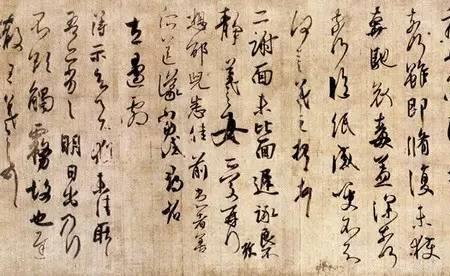 奈何雖即脩復未獲
奔馳哀毒益深奈何
奈何臨紙感哽不知
何言羲之頓首頓首
二謝面未比面遲詠良不
靜羲之女愛再拜
想邵兒悉佳前患者善
所送議當試尋省
左邊劇
得示知足下猶未佳耿耿
吾亦劣劣明日出乃行
不欲觸霧故也遲
散王羲之頓首